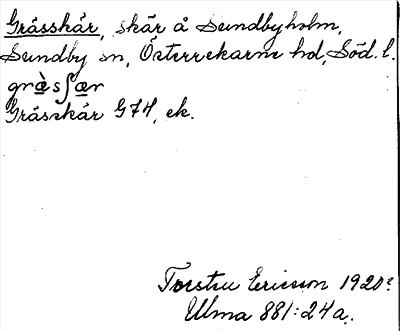 Grässkär, skär å Sundbyholm,
Sundby sn, Österrekarne hd, Söd. l.
græ̀sʃær
Grässkär G74, ek.
Torsten Ericsson 1920?
Ulma 881:24a.